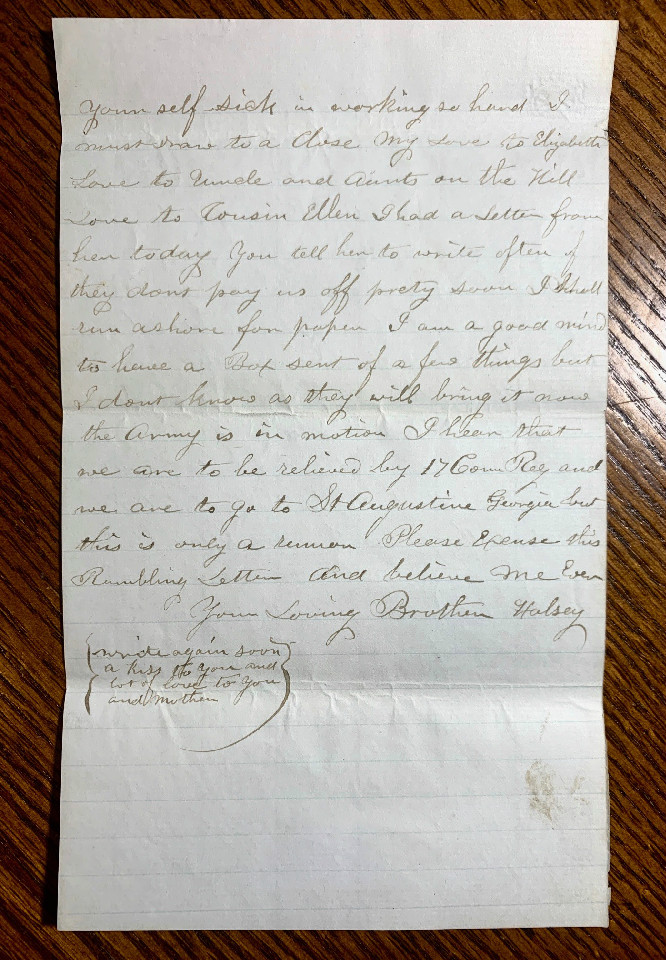 Your self sick in working so hard I
must draw to a Close My Love to Elizabeth
Love to Uncle and Aunts on the Hill
Love to Cousin Ellen I had a Letter from
her today You tell her to write often if
they dont pay us off prety soon I shall
run ashore for paper I am a good mind
to have a Box sent of a few things but
I dont know as they will bring it now
the Army is in motion I hear that
we are to be relieved by 17 Conn Reg and
we are to go to St Augustine Georgia but
this is only a rumor Please Excuse this
Rambling Letter and believe me Ever
Your Loving Brother Halsey
write again soon
a kiss to you and
lot of love to you
and mother